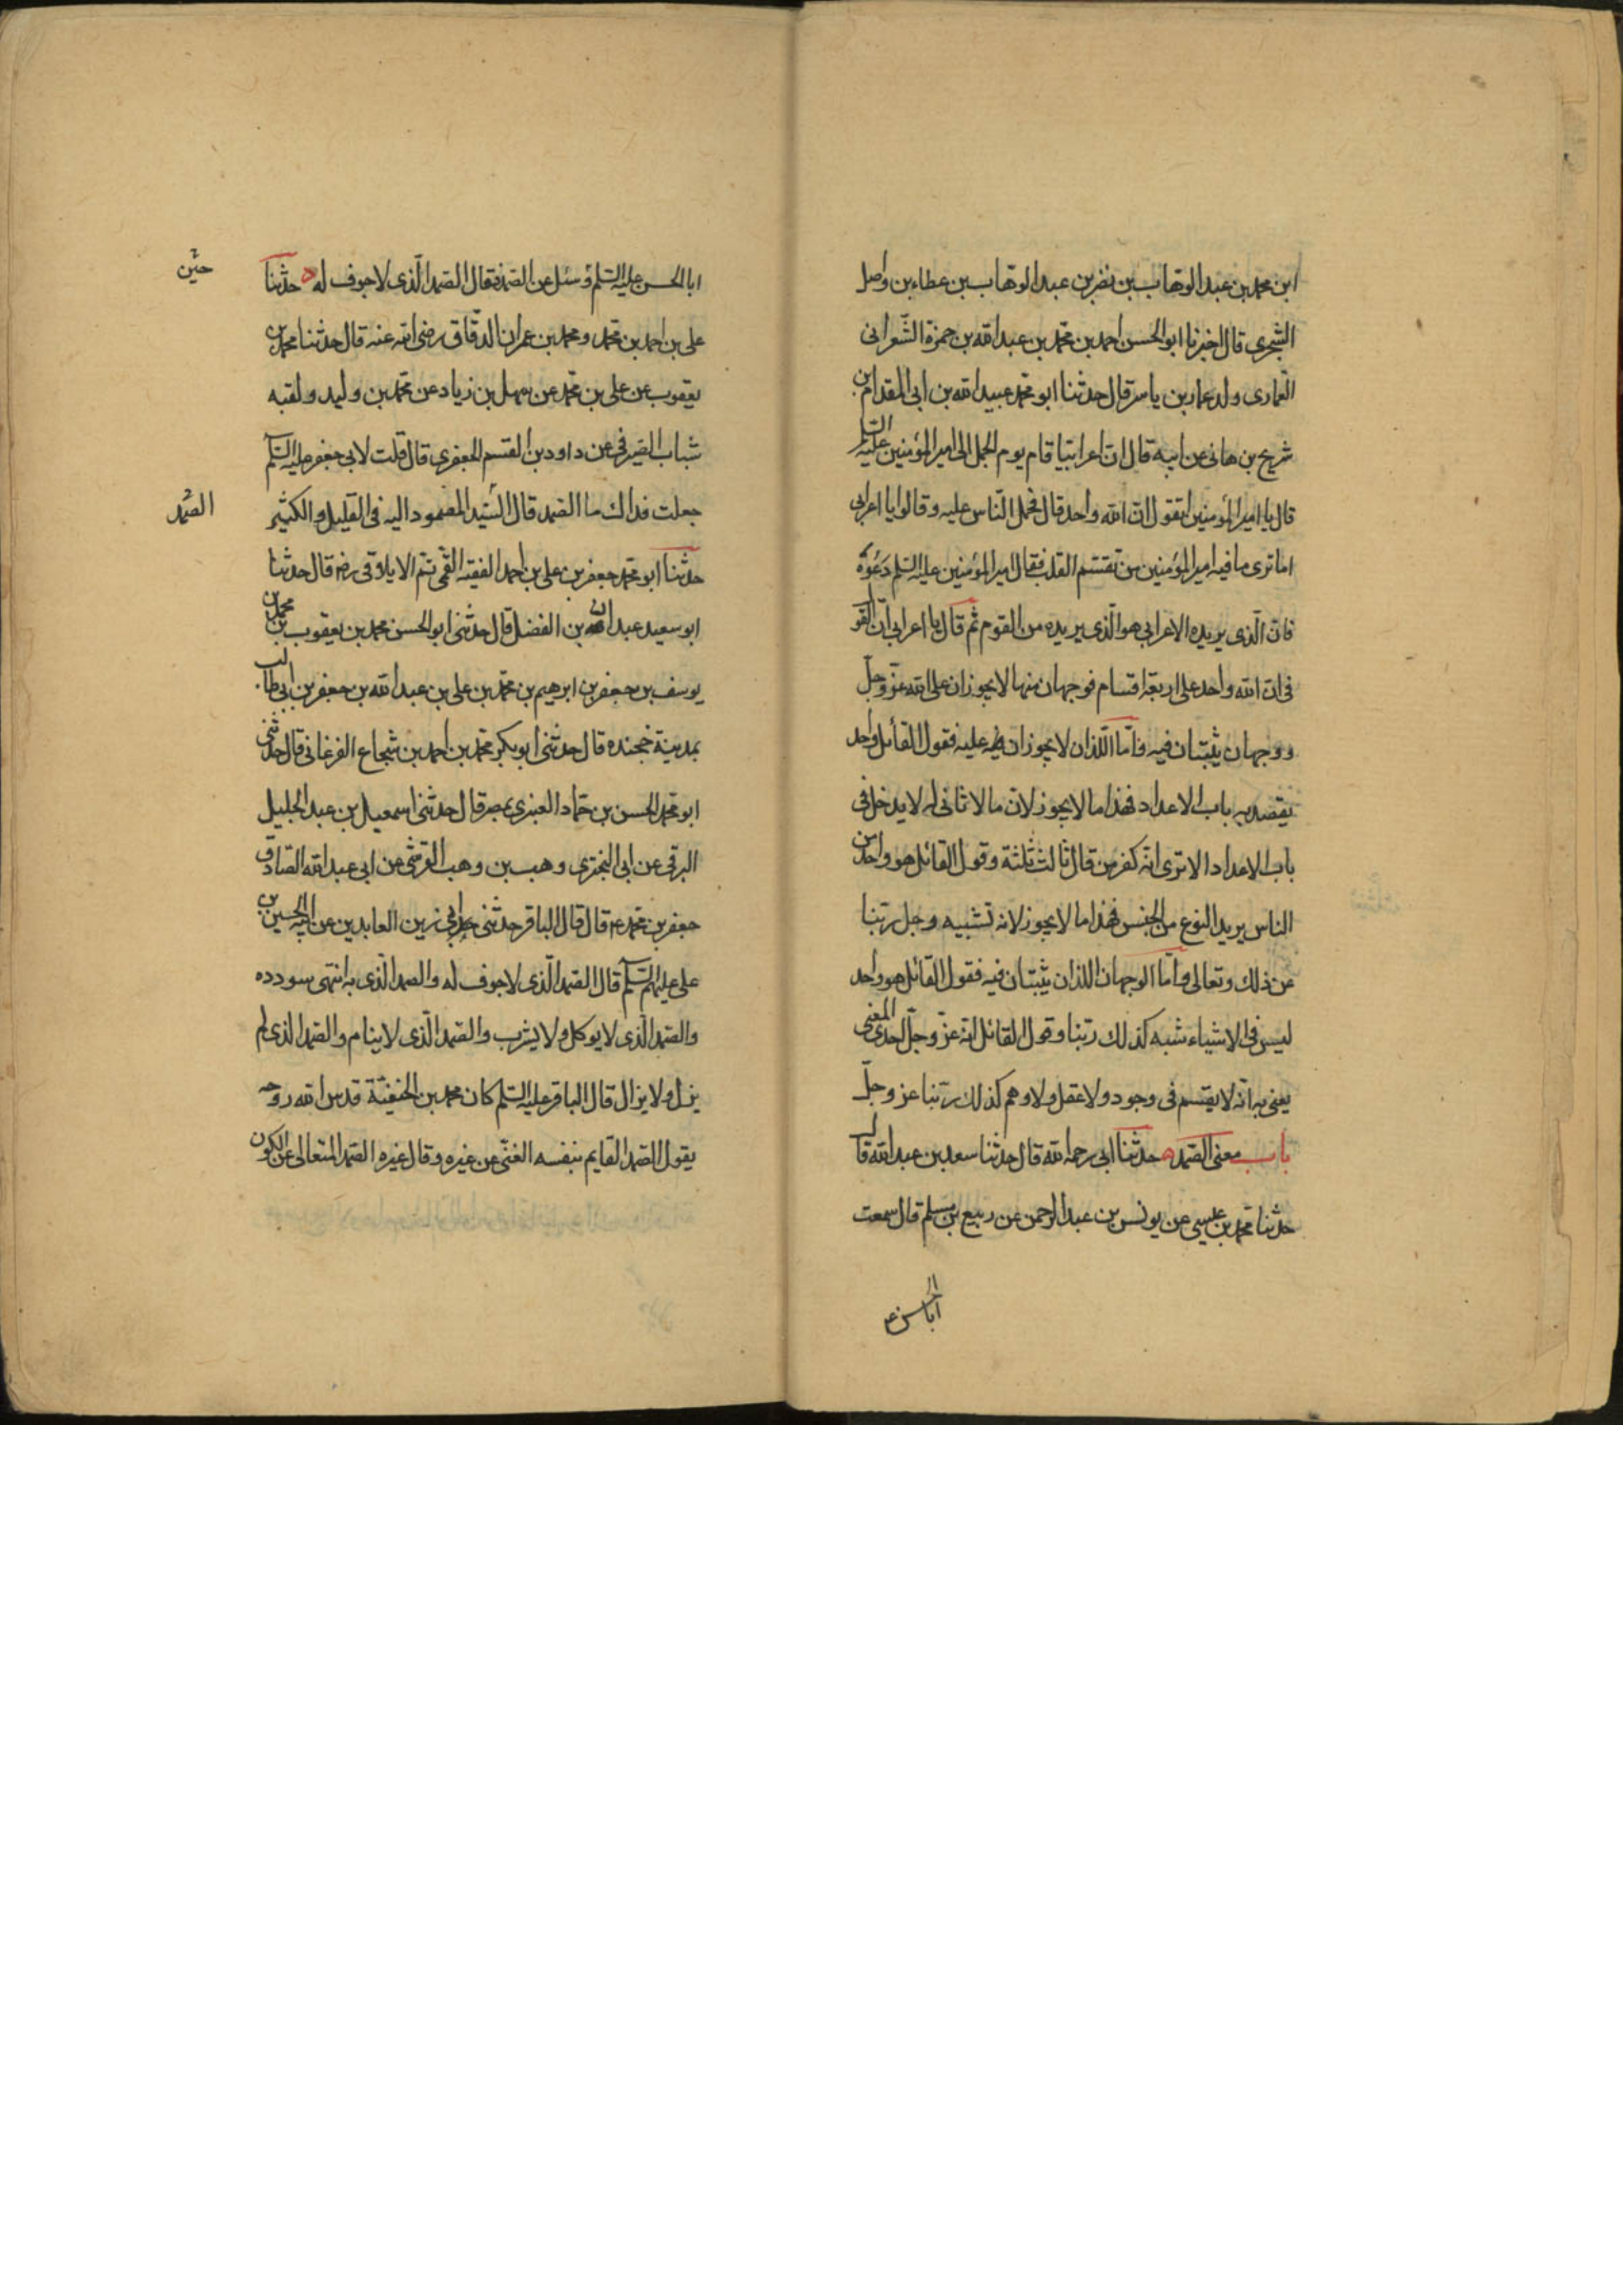 ابن محمد بن عبد الوهاب بن نضر بن عبد الوهاب بن عطاء بن واصل
الشجرى قال اخبرنا ابو الحسن احمد بن محمد بن عبد الله بن حمزة الشعرانى
العمارى ولد عمار بن ياسر قال حدثنا ابو محمد عبيد الله بن ابى المقدام بن
شريح بن هانى عن ابيه قال ان اعرابيا قام يوم الجمل الى امير المؤمنين عليه السلم
قال يا امير المؤمنين اتقول ان الله واحد قال فحمل الناس عليه وقالوا يا اعرابى
اما ترى ما فيه امير المؤمنين من تقسم القلب فقال امير المؤمنين عليه السلم دعوه
فان الذى يريده الاعرابى هو الذى يريده من القوم ثم قال يا اعرابى ان القول
فى ان الله واحد على اربعة اقسام فوجهان منها لا يجوزان على الله عز وجل
ووجهان يثبتان فيه فاما اللذان لا يجوزان عليه فقول القائل واحد
يقصد به باب الاعداد فهذا ما لا يجوز لان ما لا ثانى له لا يدخل فى
باب الاعداد الا ترى انه كفر من قال ثالث ثلثة وقول القائل هو واحد من
الناس يريد النوع من الجنس فهذا ما لا يجوز لانه تشبيه وجل ربنا
عن ذلك وتعالى واما الوجهان اللذان يثبتان فيه فقول القائل هو واحد
ليس فى الاشياء شبه كذلك ربنا وقول القائل انه عز وجل احدى المعنى
يعنى به انه لا يقسم فى وجود ولا عقل ولا وهم كذلك ربنا عز وجل
باب معنى الصمد حدثنا ابى رحمه الله قال حدثنا سعد بن عبد الله قال
حدثنا محمد بن عيسى عن يونس بن عبد الرحمن عن ربيع بن مسلم قال سمعت
ابا الحسن ع
ابا الحسن عليه السلم وسئل عن الصمد فقال الصمد الذى لا جوف له حدثنا
حين
على بن احمد بن محمد ومحمد بن عمران الدقاق رضى الله عنه قال حدثنا محمد بن
يعقوب عن على بن محمد عن سهل بن زياد عن محمد بن وليد ولقبه
شباب الصيرفى عن داود بن القسم الجعفرى قال قلت لابى جعفر عليه السلم
جعلت فداك ما الصمد قال السيد المصمود اليه فى القليل والكثير
الصمد
حدثنا ابو محمد جعفر بن على بن احمد الفقيه القمى ثم الايلاقى رضه قال حدثنا
ابو سعيد عبدان بن الفضل قال حدثنى ابو الحسن محمد بن يعقوب بن محمد بن
يوسف بن جعفر بن ابرهيم بن محمد بن على بن عبد الله بن جعفر بن ابى طالب
بمدينة خجنده قال حدثنى ابو بكر محمد بن احمد بن شجاع الفرغانى قال حدثنى
ابو محمد الحسن بن حماد العنبرى بمصر قال حدثنى اسمعيل بن عبد الجليل
البرقى عن ابى البخترى وهب بن وهب القرشى عن ابى عبد الله الصادق
جعفر بن محمد ع قال قال الباقر حدثنى ابى زين العابدين عن ابيه الحسين بن
على عليهم السلم قال الصمد الذى لا جوف له والصمد الذى به انتهى سودده
والصمد الذى لا يوكل ولا يشرب والصمد الذى لا ينام والصمد الذى لم
يزل ولا يزال قال الباقر عليه السلم كان محمد بن الحنفية قدس الله روحه
يقول الصمد القايم بنفسه الغنى عن غيره وقال غيره الصمد المتعالى عن الكون